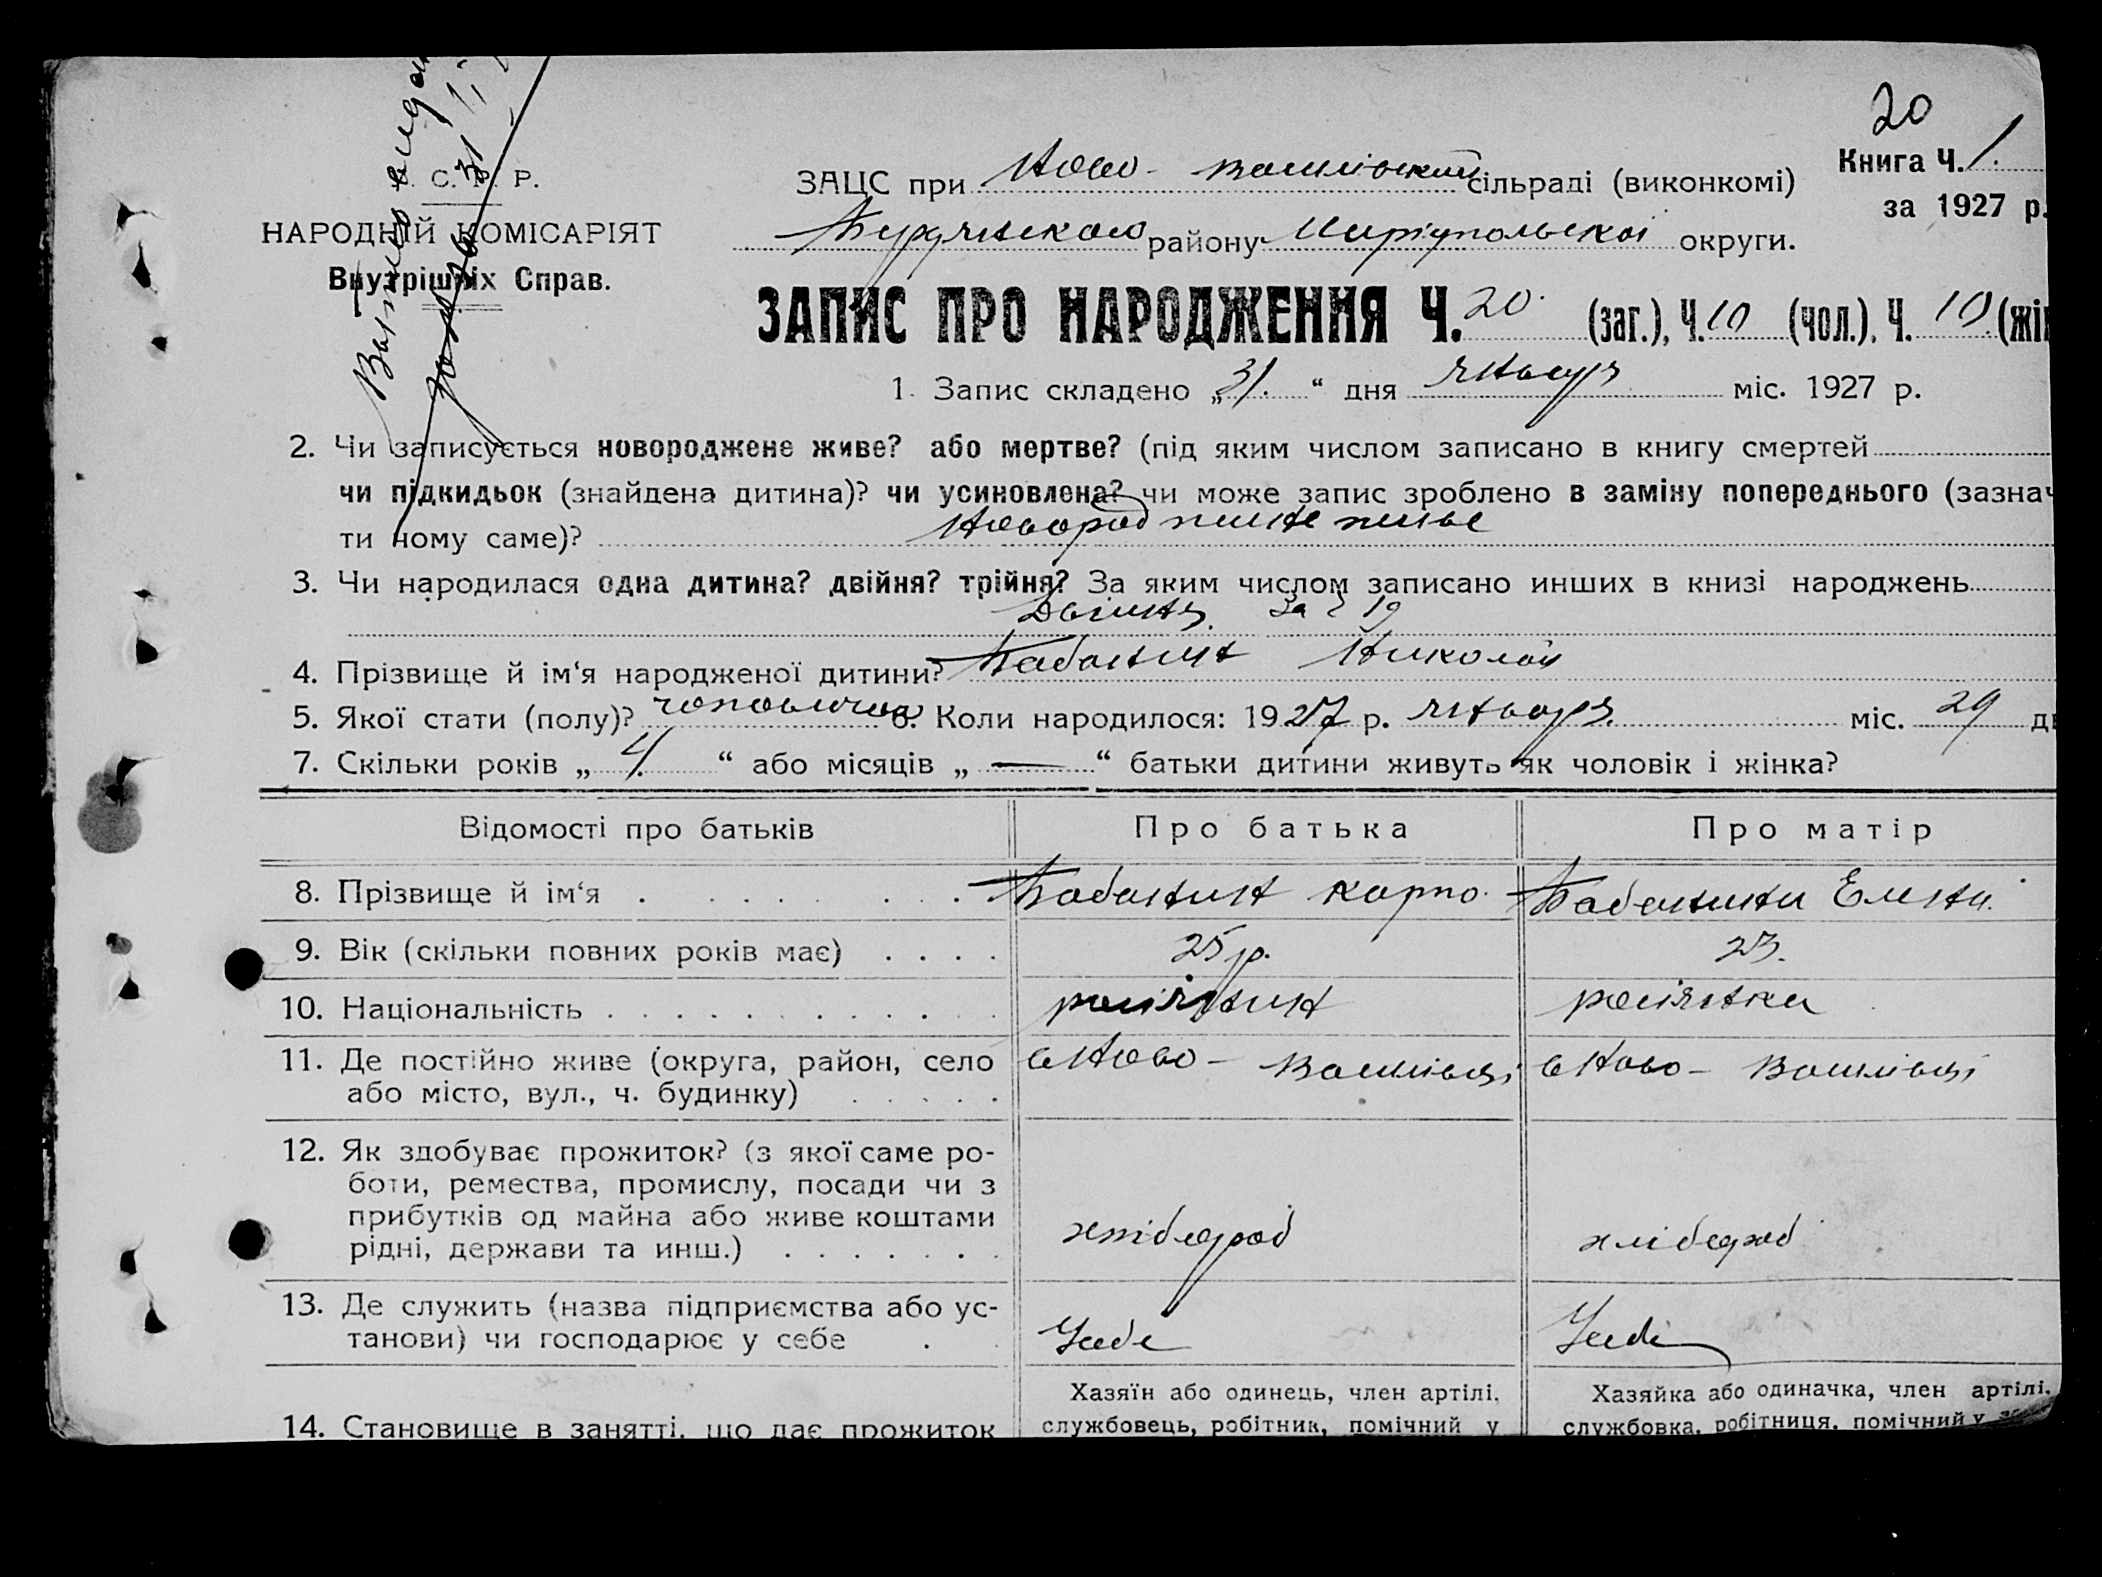 20
Книга Ч. 1.
за 1927 р.
С. Р. Р.
НАРОДНІЙ КОМІСАРІЯТ
Внутрішніх Справ.
ЗАЦС при Ново - сільраді (виконкомі)
району Маріупольскої округи.
ЗАПИС ПРО НАРОДЖЕННЯ Ч. 20 (заг.), Ч. 10 (чол.), Ч. 10 (жін
1. Запис складено „31.“ дня января міс. 1927 р.
2. Чи записується новороджене живе? або мертве? (під яким числом записано в книгу смертей
чи підкидьок (знайдена дитина)? чи усиновлена? чи може запис зроблено в заміну попереднього (зазнач
ти чому саме)? Новорожжене живе
3. Чи народилася одна дитина? двійня? трійня? За яким числом записано инших в книзі народжень
Двійня. За Ч 19
4. Прізвище й ім‘я народженої дитини? Бабанин Николай
5. Якої стати (полу)? чоповичої 6. Коли народилося: 1927 р. января міс. 29 дн
7. Скільки років „4“ або місяців „—“ батьки дитини живуть як чоловік і жінка?
Відомості про батьків Про батька Про матір
8. Прізвище й ім‘я Бабанин Карпо. Бабанина Елена.
9. Вік (скільки повних років має) 25 р. 23.
10. Національність росіянин росіянка
11. Де постійно живе (округа, район, село
або місто, вул., ч. будинку) в Ново - в Ново -
12. Як здобуває прожиток? (з якої саме ро-
боти, ремества, промислу, посади чи з
прибутків од майна або живе коштами
рідні, держави та инш.) хлібороб хлібороб
13. Де служить (назва підприємства або ус-
танови) чи господарює у себе У себе У себе
14. Становище в занятті, що дає прожиток
Хазяїн або одинець, член артілі,
службовець, робітник, помічний у
Хазяйка або одиначка, член артілі,
службовка, робітниця, помічний у